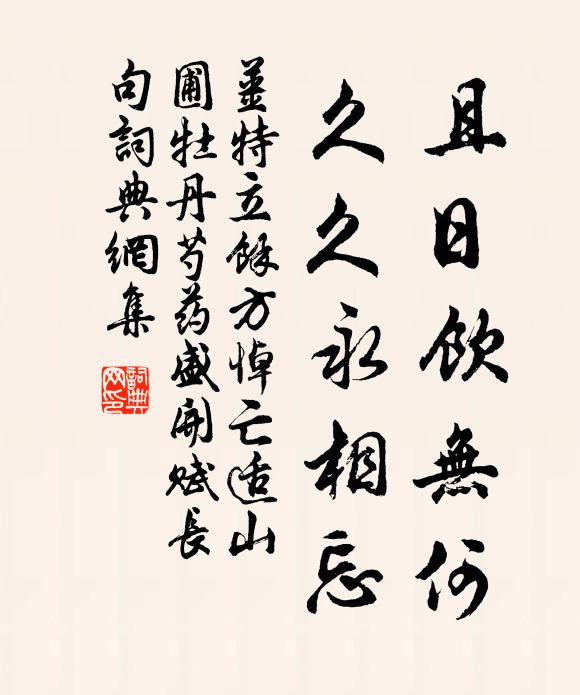 且日飲無何
久久永相忘
姜特立餘方悼亡适山
圃牡丹芍药盛開赋長
句詞典網集
詞典
网印